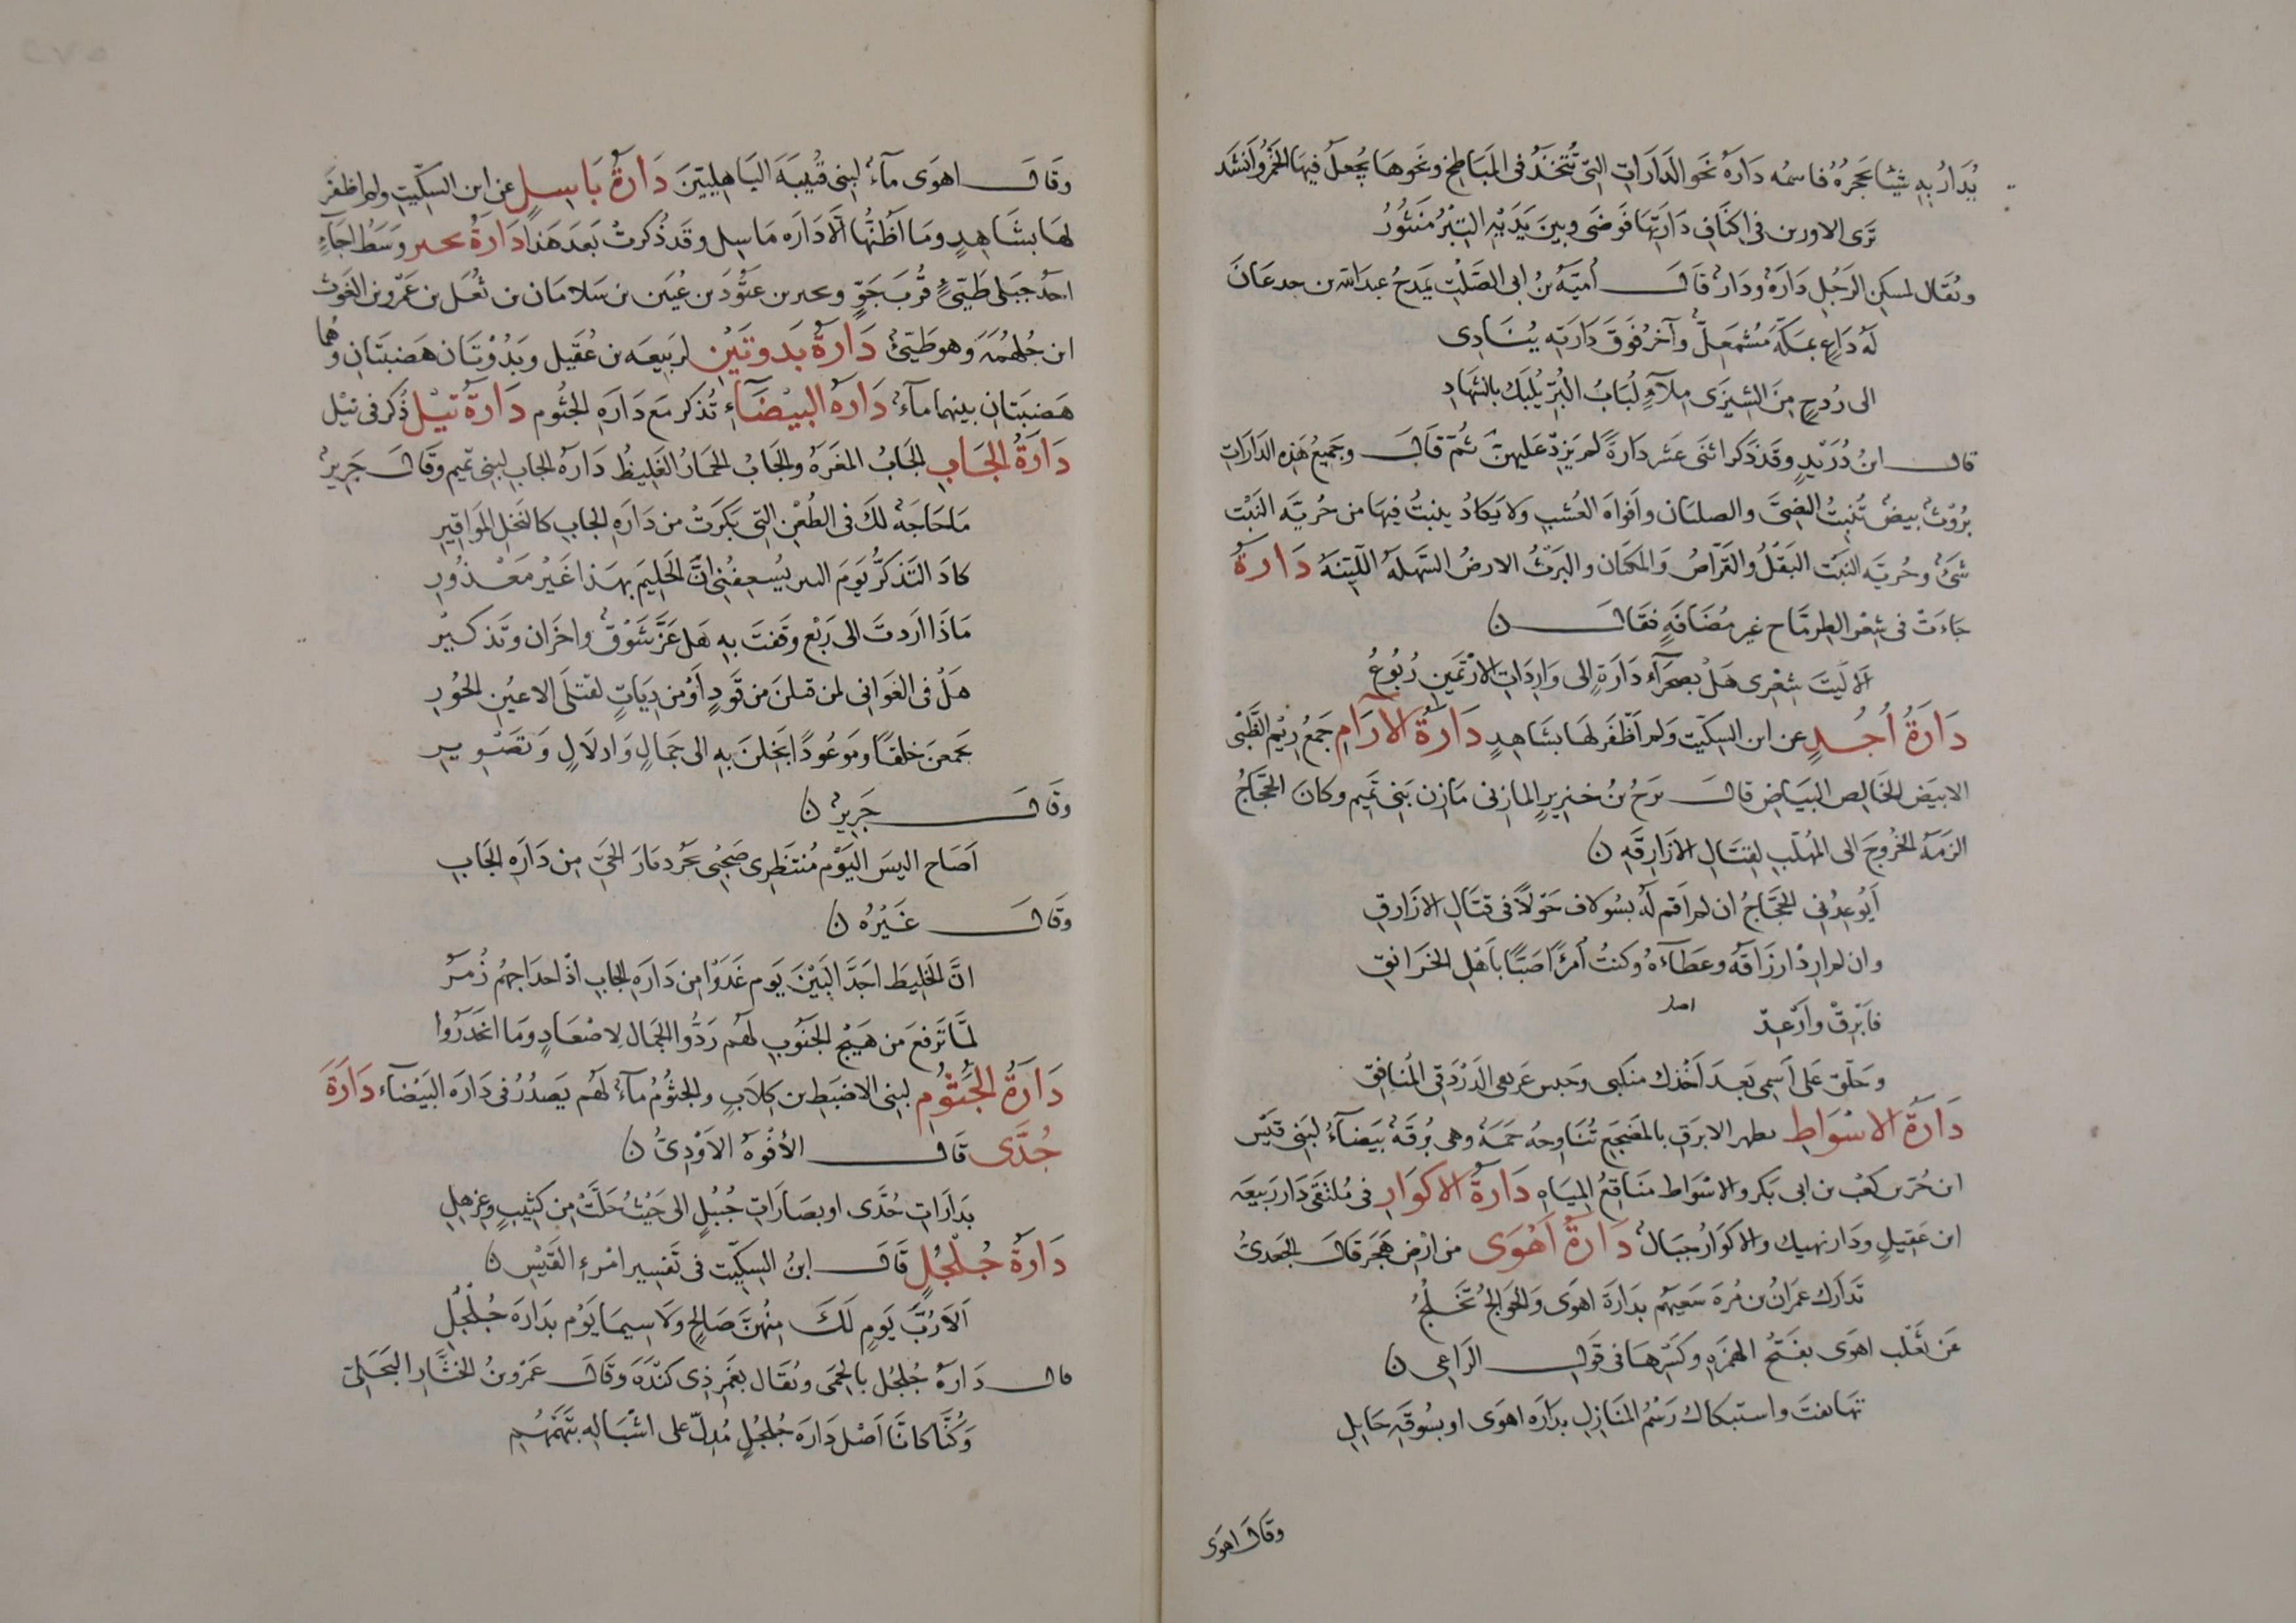 يُدَارُ بِهِ شيئا يحجُرُهُ فاسمُه دَارَة نَحو الدَارَاتِ التي تُتّخَذُ في المَبَاطِخ ونحوهَا يُجعلُ فيهَا الخَمْرُ وَأنشَد
تَرَى الاوزين في اكنَافِ دَارَتِهَا فَوضَى وبين يَدَيْهِ التِبْرُ مَنثُورُ
ويُقَال لمسكِنِ الرَجُلِ دَارَةٌ ودَارٌ قَالَ أميّة بنُ ابى الصَلْتِ يَمدَحُ عبد الله بن جدعَانَ
لَهُ دَاعٍ بمكّةَ مُشمَعِلٌّ وآخرُ فَوقَ دَارَتِهِ يُنَادِى
الى رُدحٍ مِنَ الشِيزَى مِلآءٍ لُبَابُ البُرّ يُلبَكُ بالشَهَادِ
قال ابنُ دُرَيدٍ وقَد ذكر اثنَى عشر دَارَةً لم يَزِدْ عَليهنّ ثُمّ قَالَ وجَمِيعُ هَذِه الدَارَاتِ
بُرُوثٌ بيضٌ تُنبِتُ النصِىَّ والصلىَان وافوَاهَ العُشبِ ولا يَكَادُ ينبتُ فيهَا من حُريّة النَبْت
شَىءٌ وحُريَّه النَبْت البَقْلُ والقُرّاصُ وَالمكنَان والبَرثُ الارضُ السَهلَه اللَيّنَه دَارَةُ
جَاءَتْ فى شِعْر الطِرمَّاح غير مُضَافَةٍ فقَالَ ن
الا لَيتَ شِعْرِى هَلْ بصَحرَآء دَارَةٍ الى وَارِدَاتِ الارْثمَينِ رُبُوعُ
دَارَةُ أُجُدٍ عن ابن السِكّيت ولم اَظْفَر لهَا بشَاهِدٍ دَارَةُ الآرَامِ جَمعُ رِيْمِ الظَبْى
الابيَض الخَالِص البَيَاضِ قالَ برَحُ بنُ خنزيرٍ المازِنى مَازِن بَنى تَمِيم وكان الحَجَّاجُ
الزَمَه الخُرُوجَ الى المُهَلّبِ لِقِتَالِ الازَارِقَهِ ن
اَيُوعِدُنِى الحَجَّاجُ ان لم اَقم لَهُ بسُولاف حَولاً فى قتَالِ الازَارِقِ
وان لم ارِدْ ارزَاقَهُ وعَطَآءَهُ وكنتُ اُمرُءًا صَبّاً بِاَهْلِ الخَرَانقِ
فاَبْرِقْ وارْعِدْ
وحَلّق عَلى اسمِى بَعدَ اَخْذك منكَبى وحَبس عَريفى الدَرْدَقِىّ المُنَافِقِ
دَارَةُ الاسْوَاطِ بظهر الابرَقِ بالمَضجَعِ تُنَاوِحُه حَمَه وهى بُرقَةٌ بَيضَآءُ لبَنِى قَيْس
ابن جُزء بن كعب بن ابى بَكر والاسْوَاط مَنَاقِعُ المِيَاهِ دَارَةُ الاكوَارِ فى مُلتقَى دَار رَبِيعَه
ابن عَقِيلٍ ودَار نهيك والاكوَارُ جبَالٌ دَارَةُ اَهْوَى من ارْضِ هَجَر قَالَ الجَعدِىُّ
تَدَارَك عِمرَانُ بن مُرة سَعيَهُم بدَارَة اهوَى وَالخَوَالِجُ تَخلِجُ
عَن ثَعْلَب اهوَى بفَتحُ الهَمَزِه وكَسرِهَا فى قَولِ الرَاعِى ن
تهَانفت واستبكَاك رَسْمُ المَنَازِلِ بدَارَه اهوَى او بسُوقَهِ حَايِلِ
وقَالَ اهوَى
وقَالَ اهوَى مآءٌ لِبَنِى قُتَيبَة البَاهِليّينَ دَارَةُ بَاسِلٍ عن ابن السِكّيتِ ولم اظفَر
لهَا بشَاهِدٍ ومَا اَظُنّهَا الّا دَارَه مَاسِل وقَد ذُكرتْ بَعد هَذا دَارَةُ بحتر وَسَط اجَآءٍ
احَدُ جبَلى طَيّىءٍ قُربَ جَوٍّ وبحتر بن عَتُود بن عُنَين بن سَلامَان بن ثُعَل بن عَمرو بن الغَوث
ابن جُلهُمَه وهو طَيّئ دَارَةُ بَدوتَيْنِ لرَبِيعَه بن عُقَيل وبَدْوتَان هَضبتَانِ وهُما
هَضبَتانِ بينهما مآءٌ دَارَةُ البيْضَآءِ تُذكر مَع دَارَةِ الجثُوم دَارَةُ تِيْل ذُكر فى تيْل
دَارَةُ الجَابِ الجَابُ المغَرَهُ والجَابُ الحمَارُ الغَلِيظُ دَارَةُ الجابِ لبنى تميم وقَالَ جَرِيرٌ
مَا حَاجَةٌ لكَ فى الظُعْنِ التِى بَكَرَتْ من دَارَهِ الجابِ كالنَخلِ المَوَاقِيرِ
كادَ التَذكّرُ يَومَ البين يُسعِفُنِى انَّ الحَلِيم بهَذا غَيْرُ مَعْذُورِ
مَاذَا اردتَ الى رَبْعٍ وقَفتَ بهِ هَل غَيرُ شَوْقٍ واحْزَان وتَذكِيرُ
هَلْ فى الغَوَانى لمن قتلنَ من قَوَدٍ اَوْ من دِيَاتٍ لقتلَى الاعيُنِ الحُورِ
يَجمعنَ خلفًا ومَوعُودًا بَخِلنَ بِهِ الى جَمَالٍ وَادلَالٍ وَتصْوِيرِ
وقَالَ جَرِيرٌ ن
اَصَاح اليسَ اليَوْم مُنتَظِرى صَحْبِى دِمَارَ الحَىّ مِن دَارَةِ الجَابِ
وقَالَ غَيْرُهُ ن
انَّ الخَلِيطَ اجَدَّ البَيْنَ يَوم غَدَوْا مِن دَارَهِ الجابِ اذْ احدَاجِهمُ زُمَرُ
لمَّا تَرفعَ مِن هَيْجِ الجَنُوبِ لهُم رَدُّوا الجمَالَ لِاصْعَادٍ ومَا انحَدَرُوا
دَارَةُ الجُثُوْمِ لبنِى الاضبَطِ بن كِلَابٍ والجثُومُ مآءٌ لهُم يَصدُرُ فى دَارَه البَيْضَآء دَارَةُ
جُدَّى قَالَ الأفْوَهُ الاَوْدِىُّ ن
بدَارَاتِ جُدَّى او بصَارَاتِ جُبُلٍ الى حَيْثُ حَلّتْ مِن كَثِيبٍ وعِزهِلِ
دَارَةُ جُلْجُلٍ قَالَ ابنُ السِكّيت فى تَفسِير امْرءِ القَيْسِ ن
اَلَا رُبَّ يَومٍ لَكَ مِنْهُنَّ صَالحٍ ولَا سِيمَا يَوْم بدَارَه جُلْجُلِ
قال دَارَة جُلجُل بالحِمَى ويُقَال بغَمْر ذِى كنْدَه وقَالَ عَمْرو بنُ الخثَارِم البَجَلِىّ
وَكُنّا كانّا اَصْل دَارَه جُلجُلٍ مُدِلّ على اشْبَالِهِ يتَهَمْهَمُ